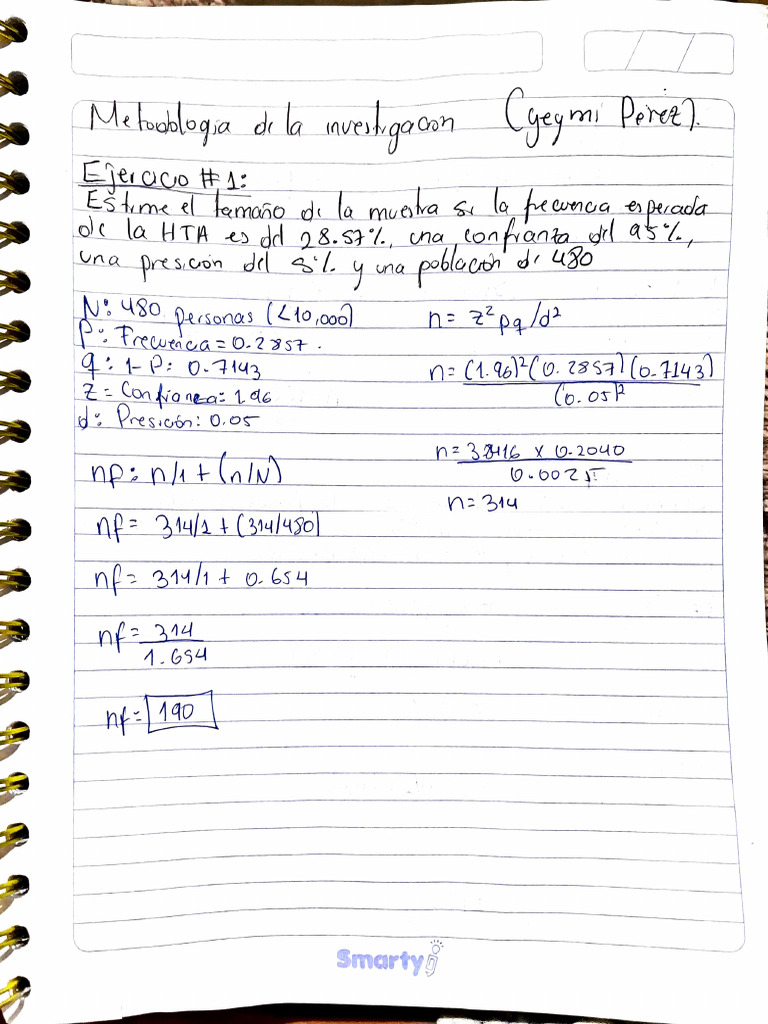 Metodologia de la investigacion (geymi Perez).
Ejercicio #1:
Estime el tamaño de la muestra si la frecuencia esperada
de la HTA es del 28.57%, una confianza del 95%,
una presición del 5% y una población de 480
N: 480 personas (<10,000)
P: Frecuencia = 0.2857.
q: 1-P: 0.7143
z = Confianza: 1.96
d: Presición: 0.05
nf: n/1 + (n/N)
nf = 314/1 + (314/480)
nf = 314/1 + 0.654
nf = 314
1.654
nf = 190
n = z² pq/d²
n = (1.96)² (0.2857) (0.7143)
(0.05)²
n = 3.8416 x 0.2040
0.0025
n = 314
Smarty